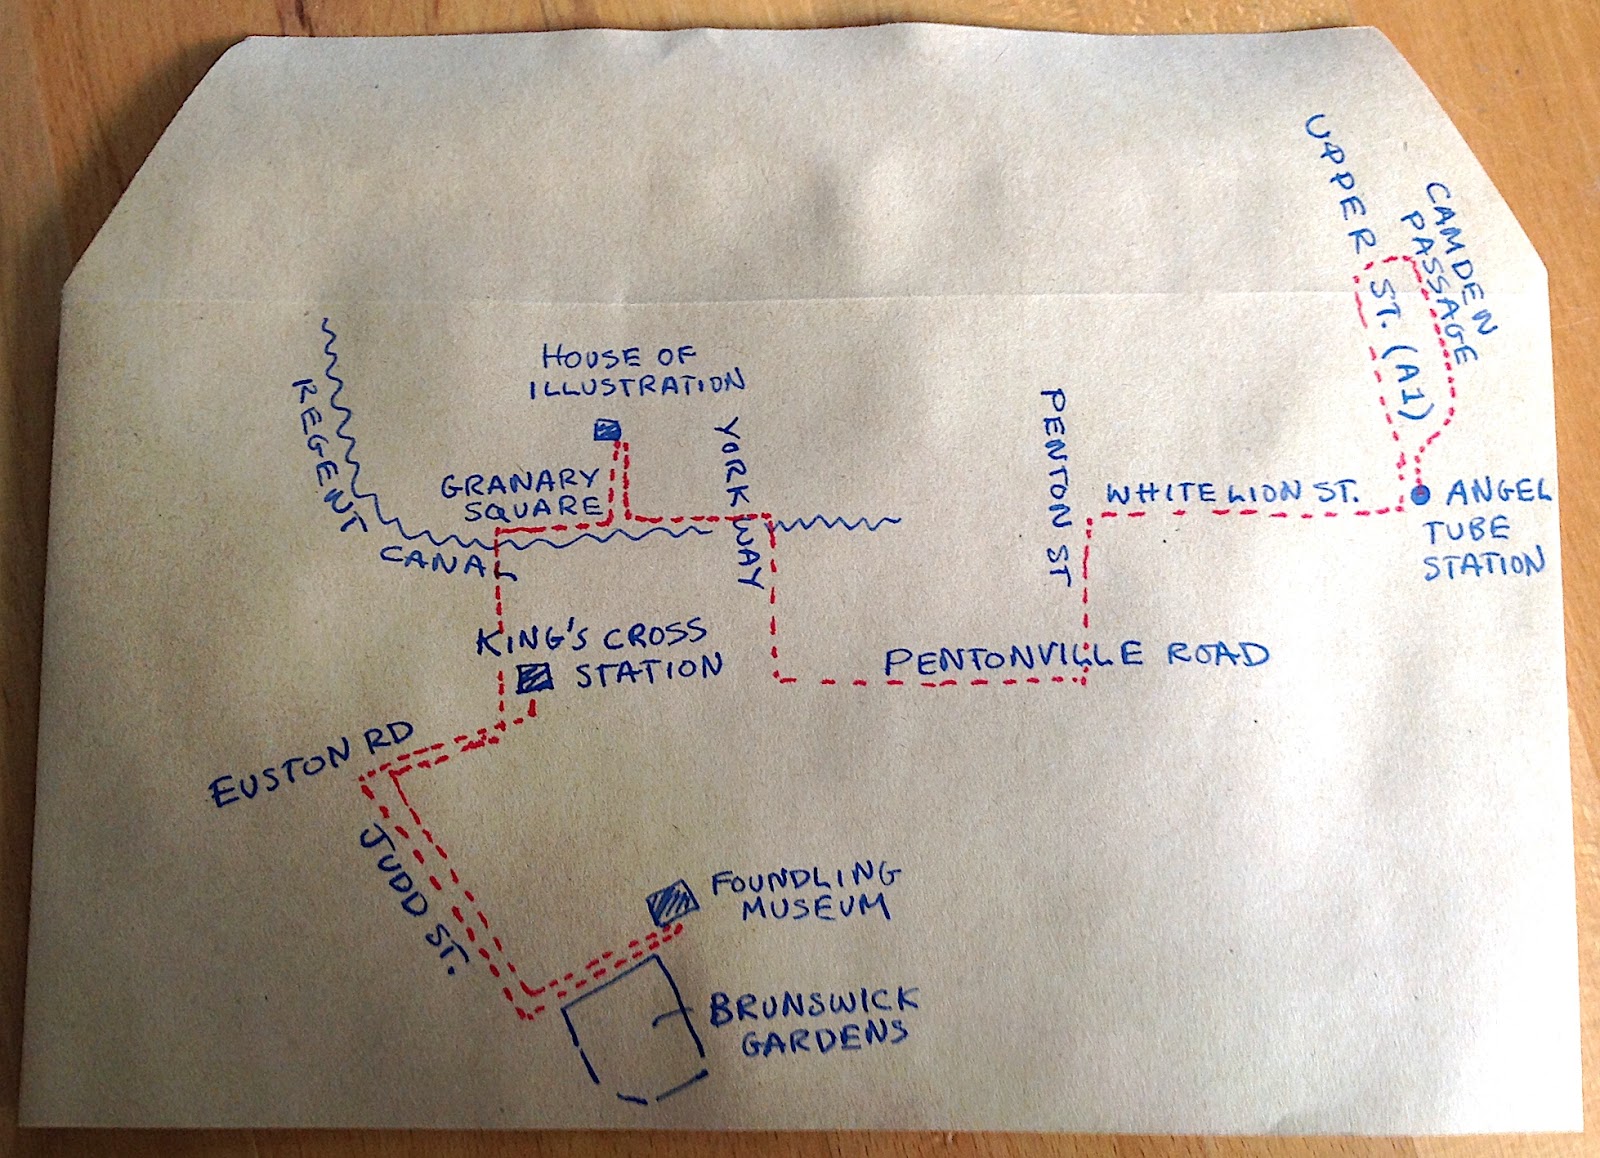 UPPER ST. (A1)
CAMDEN
PASSAGE
HOUSE OF
ILLUSTRATION
REGENT
CANAL
GRANARY
SQUARE
YORK WAY
PENTON ST
WHITE LION ST.
ANGEL
TUBE
STATION
KING'S CROSS
STATION
PENTONVILLE ROAD
EUSTON RD
JUDD ST.
FOUNDLING
MUSEUM
BRUNSWICK
GARDENS